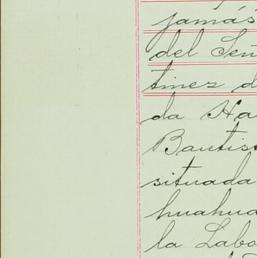 jamás
del Señ
tinez d
da Ha
Bautis
situada
huahua
la Labo